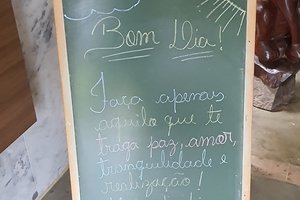 Bom Dia!
Faça apenas
aquilo que te
traga paz, amor,
tranquilidade e
realização!